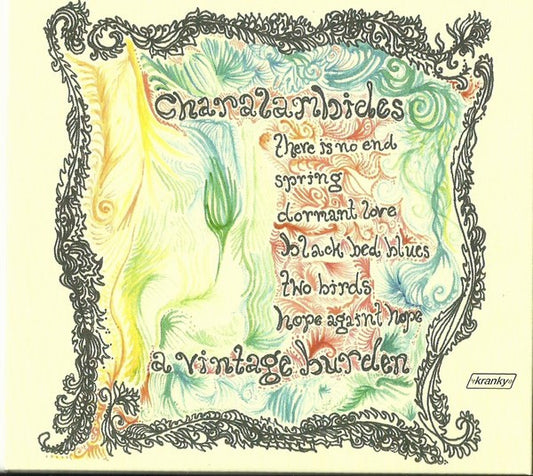 Charalambides
there is no end
spring
dormant love
black bed blues
two birds
hope against hope
a vintage burden
kranky